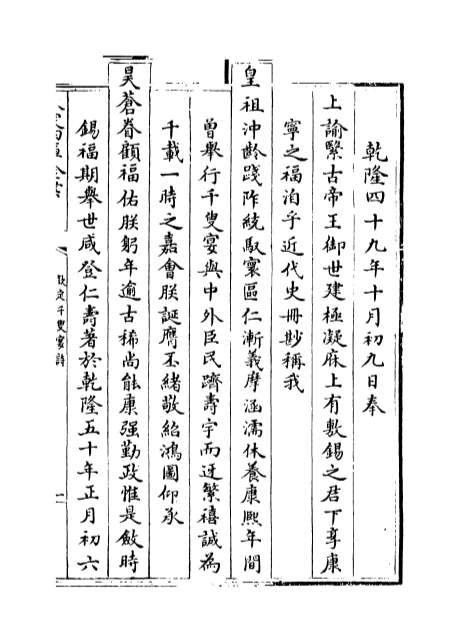 乾隆四十九年十月初九日奉
上諭繄古帝王御世建極凝庥上有敷錫之君下享康
寧之福洎乎近代史冊尠稱我
皇祖沖齡踐阼統馭寰區仁漸義摩涵濡休養康熙年間
曾舉行千叟宴與中外臣民躋壽宇而迓繁禧誠為
千載一時之嘉會朕誕膺丕緒敬紹鴻圖仰承
昊蒼眷顧福佑朕躬年逾古稀尚能康强勤政惟是斂時
錫福期舉世咸登仁壽著於乾隆五十年正月初六
欽定千叟宴詩
一